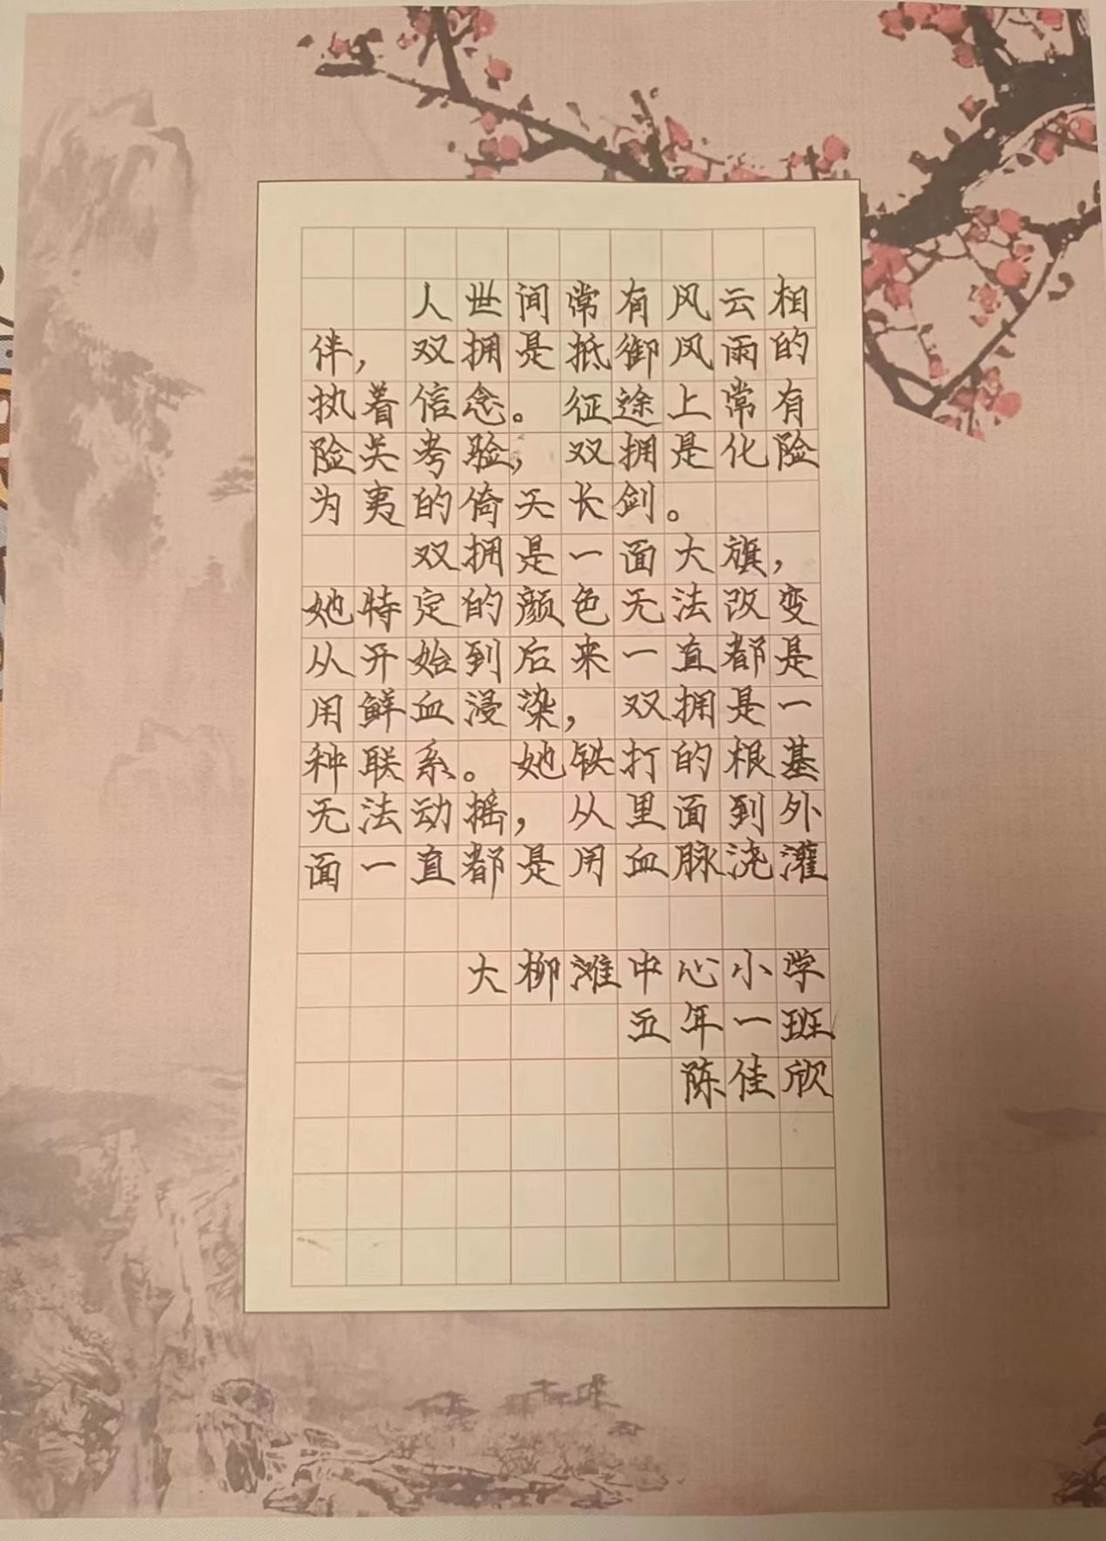 人世间常有风云相
伴，双拥是抵御风雨的
执着信念。征途上常有
险关考验，双拥是化险
为夷的倚天长剑。
双拥是一面大旗，
她特定的颜色无法改变
从开始到后来一直都是
用鲜血浸染，双拥是一
种联系。她铁打的根基
无法动摇，从里面到外
面一直都是用血脉浇灌
大柳滩中心小学
五年一班
陈佳欣